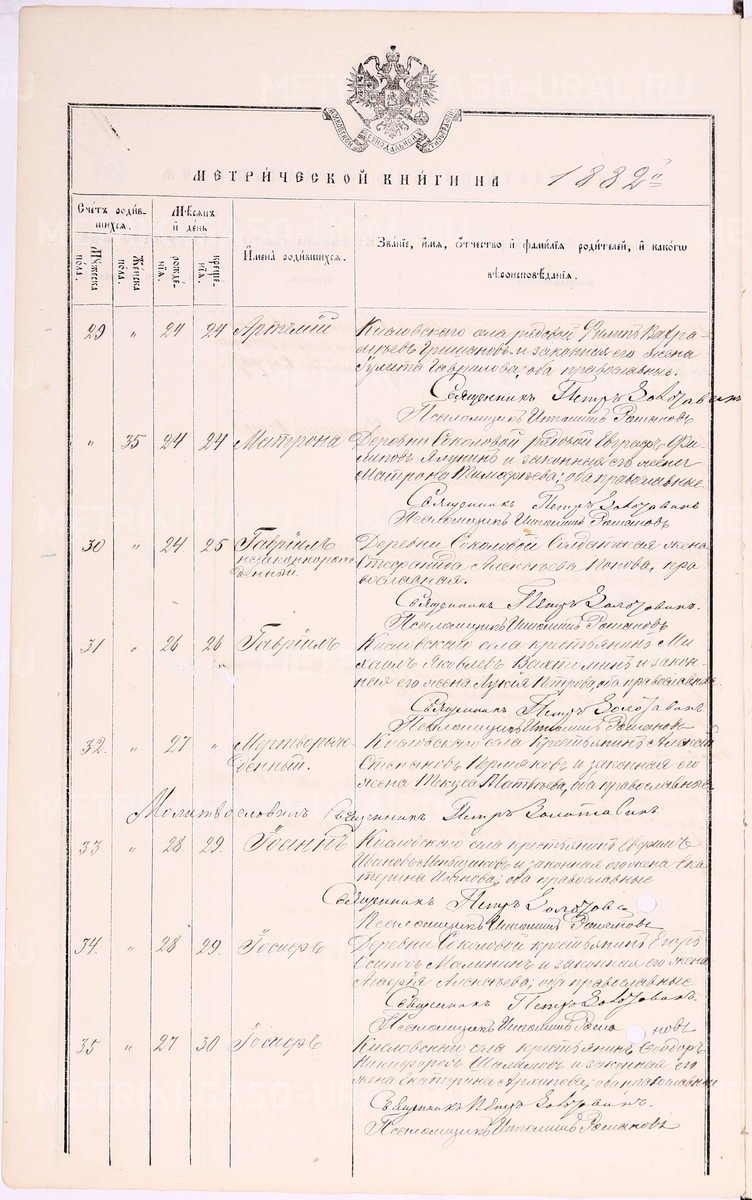 МЕТРИЧЕСКОЙ КНИГИ НА 1882 г.
Счетъ родив-
шихся.
Мѣсяцъ
и день
Мужеска
пола.
Женска
пола.
рожде-
нія.
креще-
нія.
Имена родившихся.
Званіе, имя, отчество и фамилія родителей, и какого
вѣроисповѣданія.
29 " 24 24 Артемій Кисловскаго села рядовой Филипъ Вахра-
мѣевъ и законная его жена
Гаврилова; оба православные.
Священникъ Петръ Золотавинъ
Псаломщикъ Романовъ
" 35 24 24 Матрона Деревни Соколовой рядовой Евграфъ Фи-
липовъ и законная его жена
Матрона Тимофеева; оба православные
Священникъ Петръ Золотавинъ
Псаломщикъ Романовъ
30 " 24 25 Гавріилъ Деревни Соколовой Солдатская жена
незаконнорож-
денный. Стефанида Алексѣева Попова, пра-
вославная.
Священникъ Петръ Золотавинъ.
Псаломщикъ Романовъ
31 " 26 26 Гавріилъ Кисловскаго села крестьянинъ Ми-
хаилъ Яковлевъ и закон-
ная его жена Лукія Петрова, оба православные.
Священникъ Петръ Золотавинъ
Псаломщикъ Романовъ
32. " 27 " Мертворож-
денный. Кисловскаго села крестьянинъ Алексѣй
Степановъ Пермяковъ и законная его
жена Текуса Матвѣева, оба православные.
Молитвословилъ Священникъ Петръ Золотавинъ
33 " 28 29. Іоаннъ Кисловскаго села крестьянинъ
Ивановъ и законная его жена Ека-
терина Иванова; оба православные
Священникъ Петръ Золотавинъ
Псаломщикъ Романовъ
34. " 28 29. Іосифъ Деревни Соколовой крестьянинъ Егоръ
Осиповъ Малининъ и законная его жена
Агафія Алексѣева; оба православные
Священникъ Петръ Золотавинъ.
Псаломщикъ Романовъ
35 " 27 30 Іосифъ Кисловскаго села крестьянинъ Ѳеодоръ
Никифоровъ Шаламовъ и законная его
жена Екатерина Архипова, оба православные
Священникъ Петръ Золотавинъ.
Псаломщикъ Романовъ